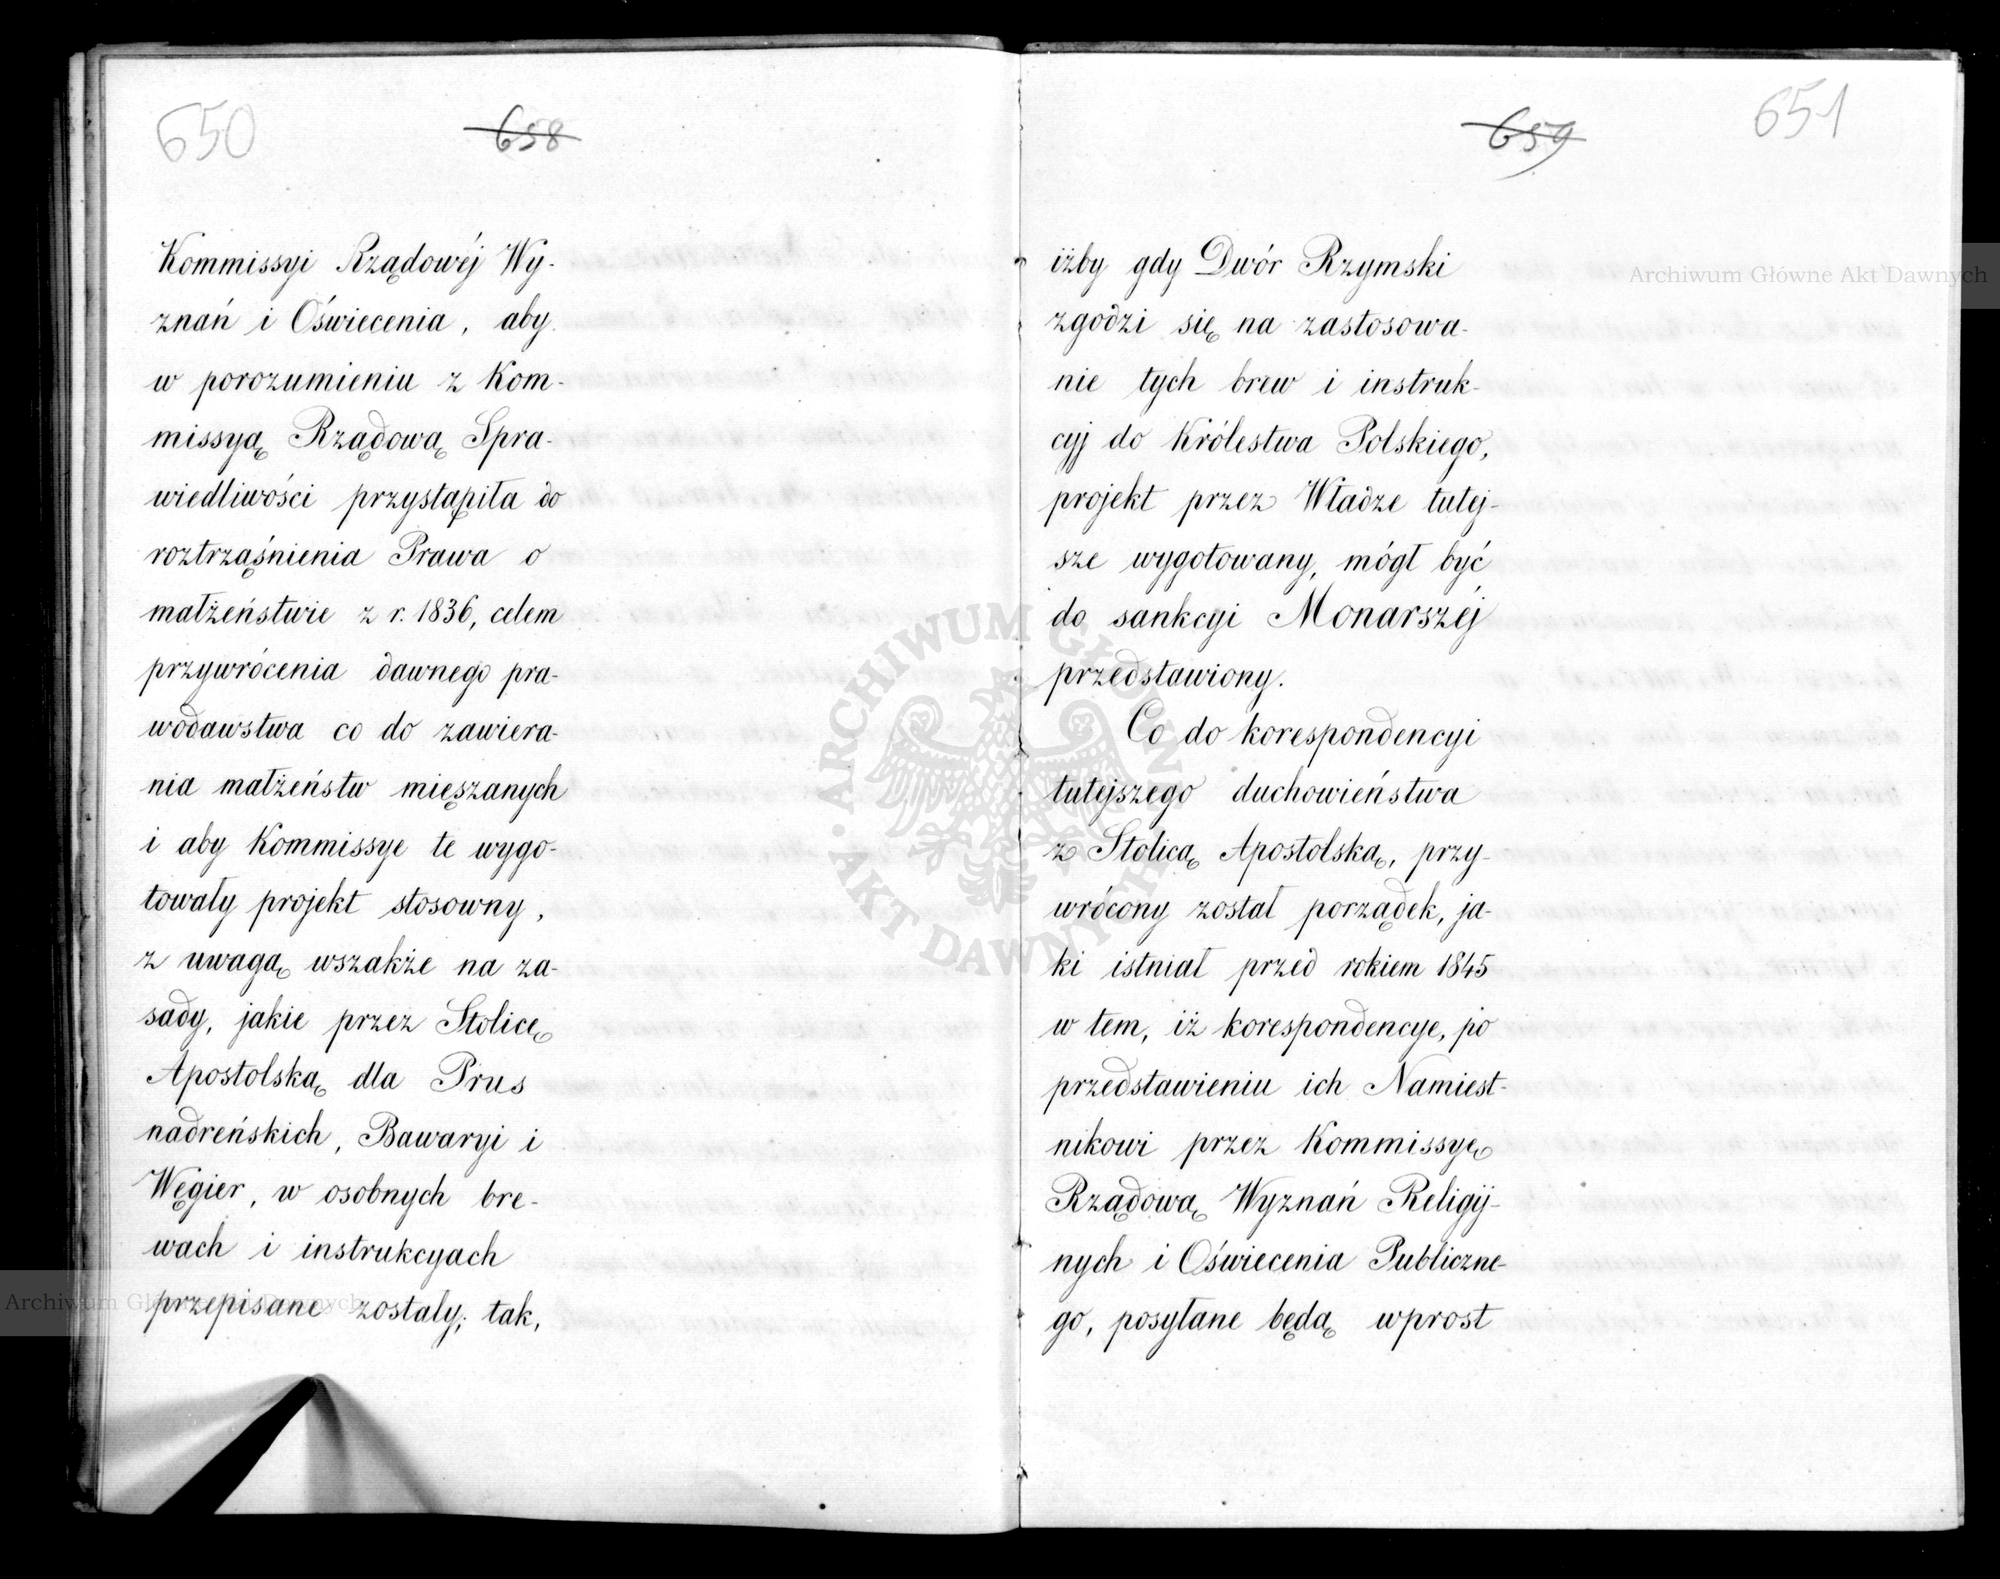 650
658
Kommissyi Rządowéj Wy-
znań i Oświecenia, aby
w porozumieniu z Kom-
missyą Rządową Spra-
wiedliwości przystąpiła do
roztrząśnienia Prawa o
małżeństwie z r. 1836, celem
przywrócenia dawnego pra-
wodawstwa co do zawiera-
nia małżeństw mięszanych
i aby Kommissye te wygo-
towały projekt stosowny,
z uwagą wszakże na za-
sady, jakie przez Stolicę
Apostolską dla Prus
nadreńskich, Bawaryi i
Węgier, w osobnych bre-
wach i instrukcyach
przepisane zostały; tak,
659
651
iżby gdy Dwór Rzymski
zgodzi się na zastosowa-
nie tych brew i instruk-
cyj do Królestwa Polskiego,
projekt przez Władze tutej-
sze wygotowany, mógł być
do sankcyi Monarszéj
przedstawiony.
Co do korespondencyi
tutejszego duchowieństwa
z Stolicą Apostolską, przy-
wrócony został porządek, ja-
ki istniał przed rokiem 1845
w tem, iż korespondencye, po
przedstawieniu ich Namiest-
nikowi przez Kommissyę
Rządową Wyznań Religij-
nych i Oświecenia Publiczne-
go, posyłane będą wprost
Archiwum Główne Akt Dawnych
Archiwum Główne Akt Dawnych
ARCHIWUM GŁÓWNE AKT DAWNYCH